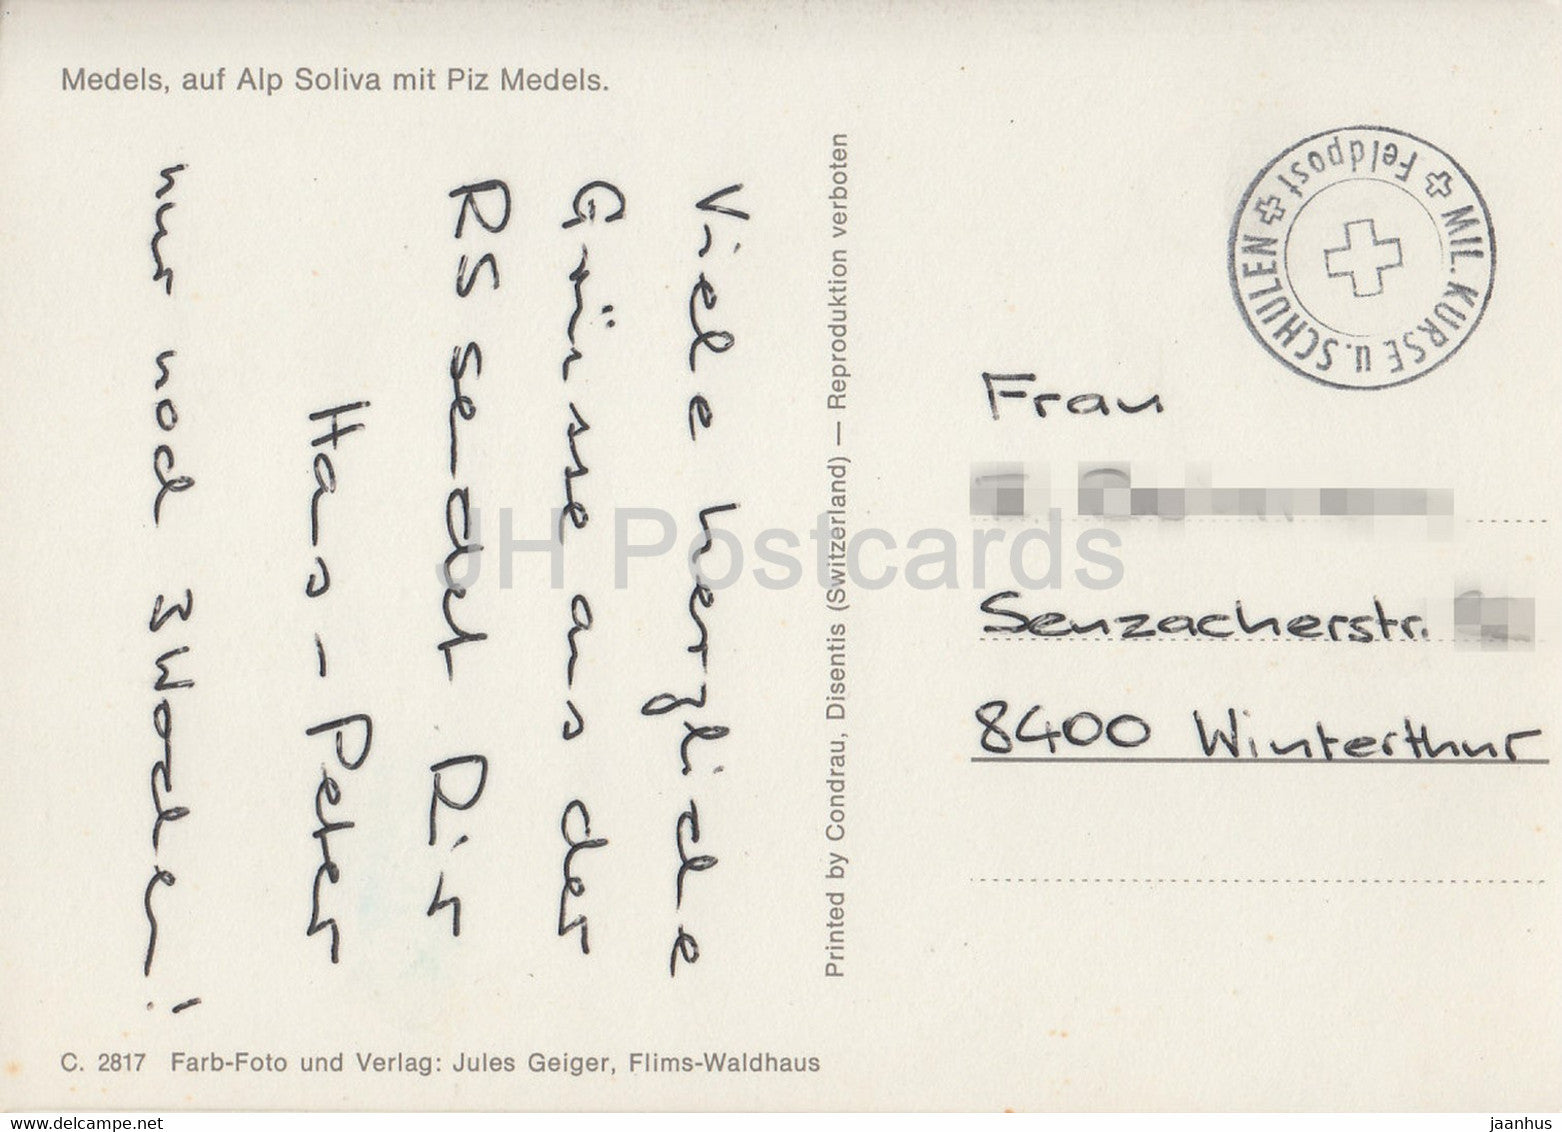 Medels, auf Alp Soliva mit Piz Medels.
Viele herzliche
Grüsse aus der
RS sendet Dir
Hans-Peter
nur noch 3 Wochen!
Printed by Condrau, Disentis (Switzerland) — Reproduktion verboten
MIL. KURSE u. SCHULEN
Feldpost
Frau
Seuzacherstr.
8400 Winterthur
C. 2817 Farb-Foto und Verlag: Jules Geiger, Flims-Waldhaus
JH Postcards
www.delcampe.net
jaanhus